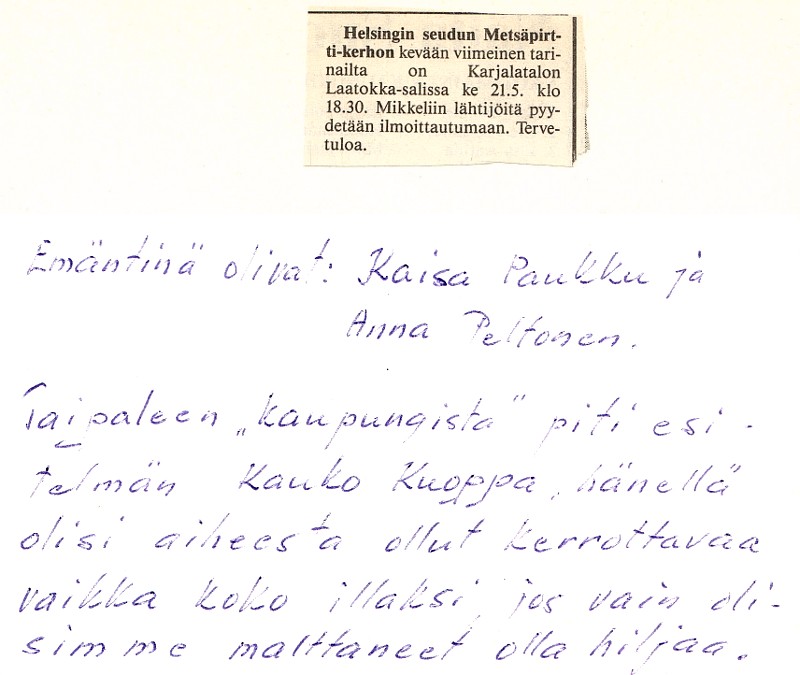 Helsingin seudun Metsäpirt-
ti-kerhon kevään viimeinen tari-
nailta on Karjalatalon
Laatokka-salissa ke 21.5. klo
18.30. Mikkeliin lähtijöitä pyy-
detään ilmoittautumaan. Terve-
tuloa.
Emäntinä olivat: Kaisa Paukku ja
Anna Peltonen.
Taipaleen „kaupungista" piti esi-
telmän Kauko Kuoppa, hänellä
olisi aiheesta ollut kerrottavaa
vaikka koko illaksi, jos vain oli-
simme malttaneet olla hiljaa.